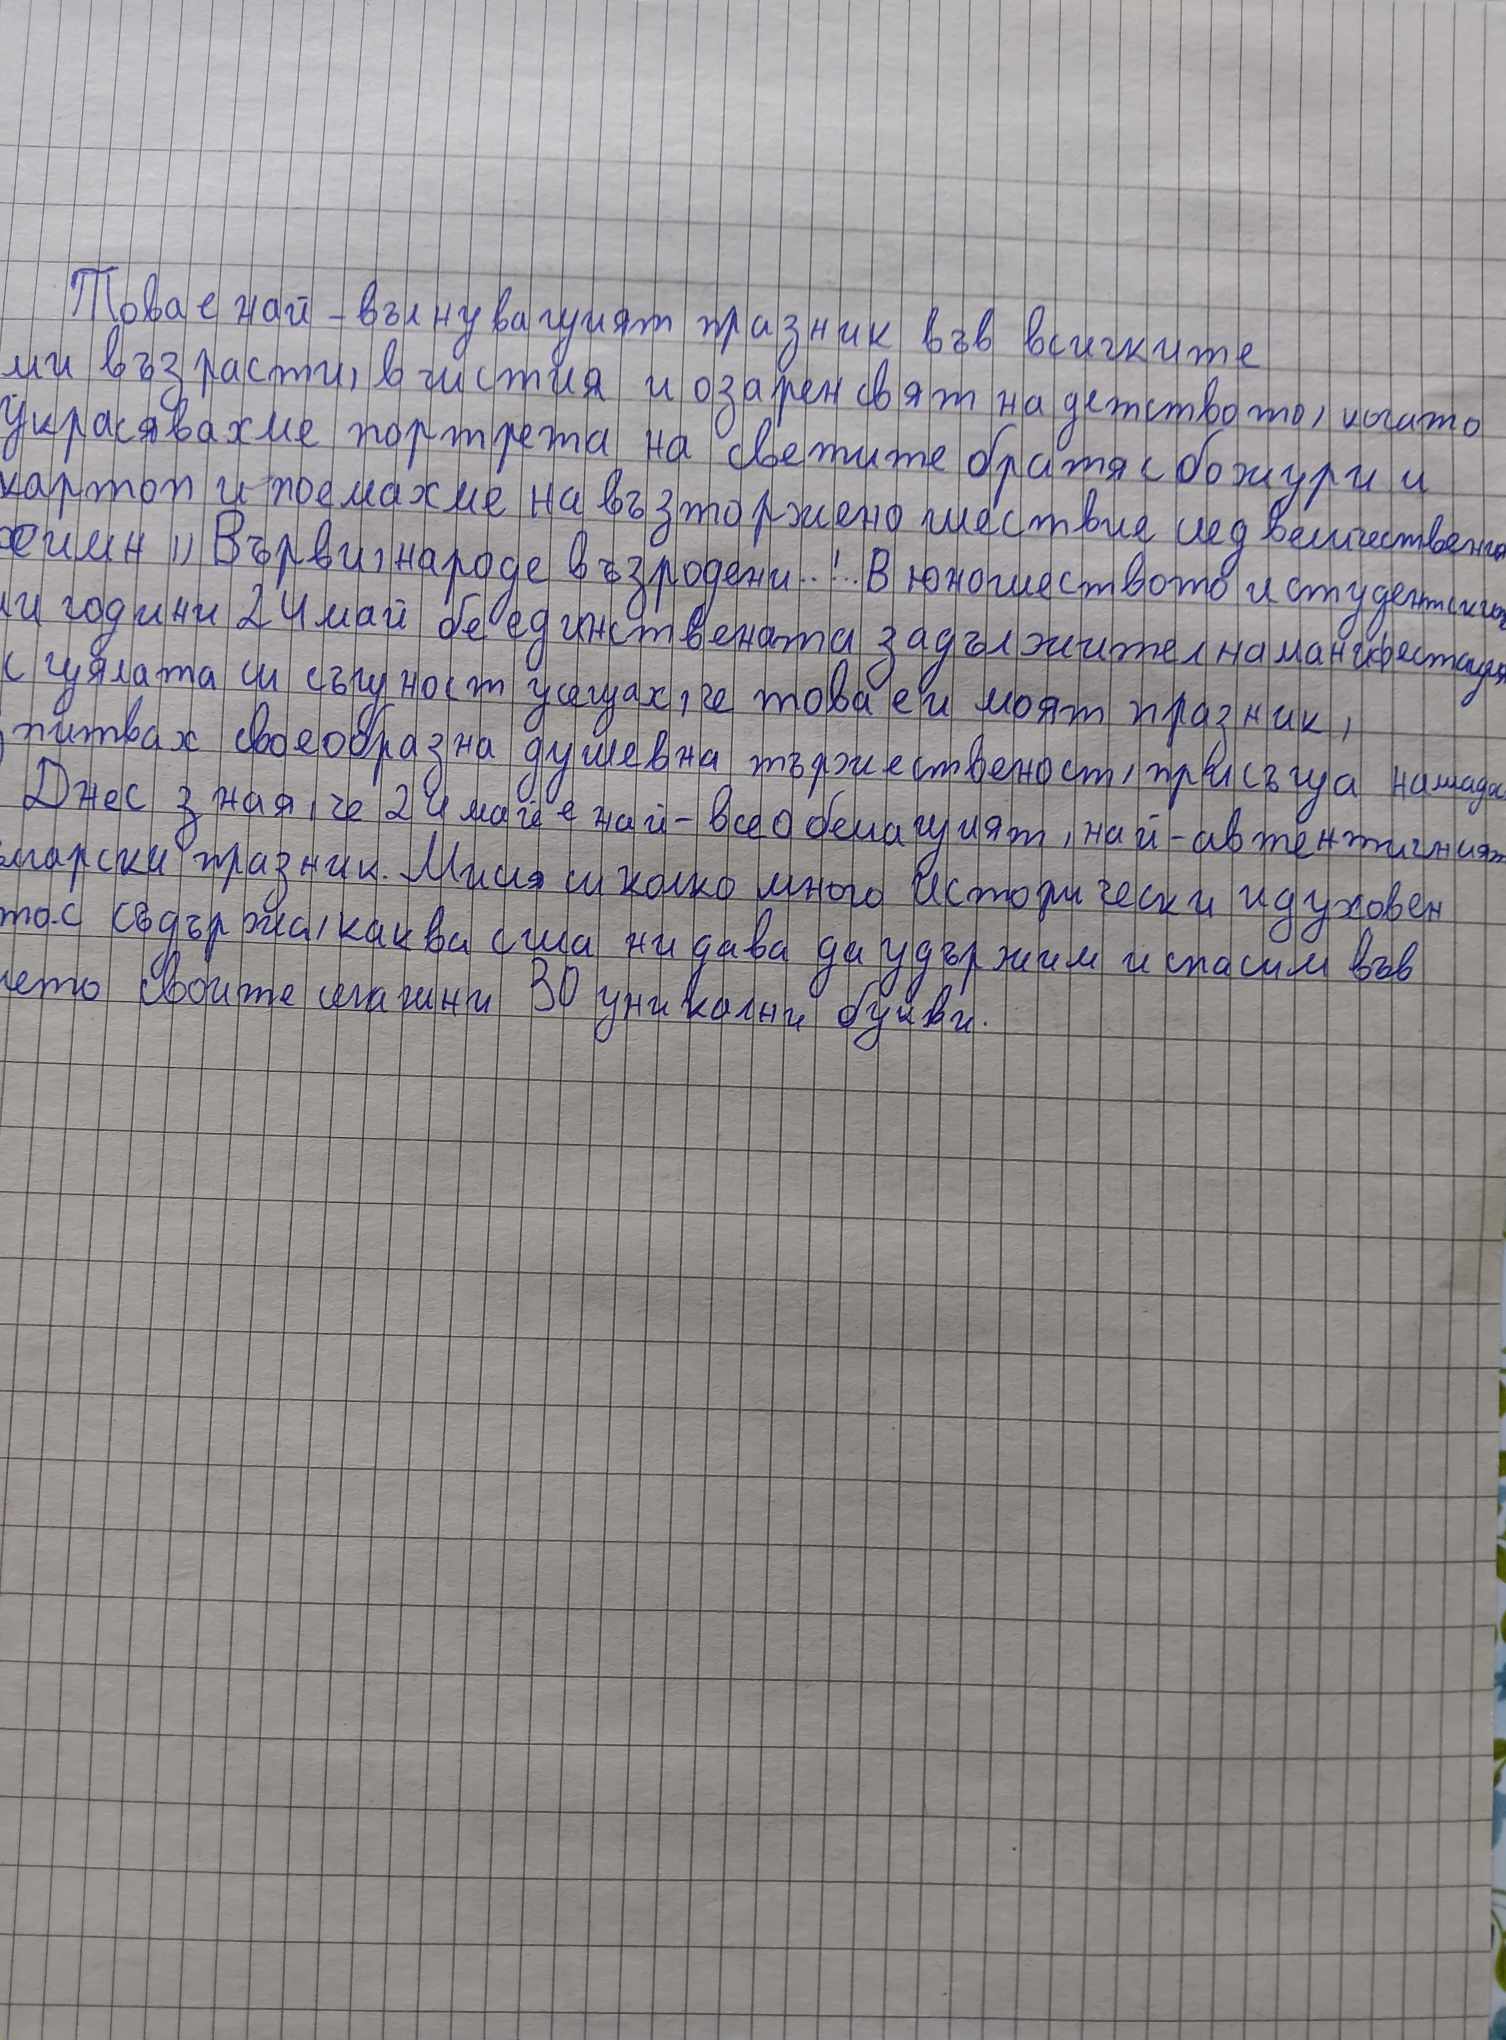 Това е най-вълнуващият празник във всичките
ми възрасти, в чистия и озарен свят на детството, когато
украсявахме портрета на светите братя с божури и
картоп и поемахме на възторжено шествие след величествения
химн „Върви, народе възродени..!.. В юношеството и студентските
ми години 24 май бе единствената задължителна манифестация
с цялата си същност усещах, че това е и моят празник,
питвах своеобразна душевна тържественост, присъща на млада
Днес зная, че 24 май е най-всеобемащият, най-автентичният
лгарски празник. Мисля си колко много исторически и духовен
то.с съдържа, каква сила ни дава да удържим и спасим във
мето своите сегашни 30 уникални букви.